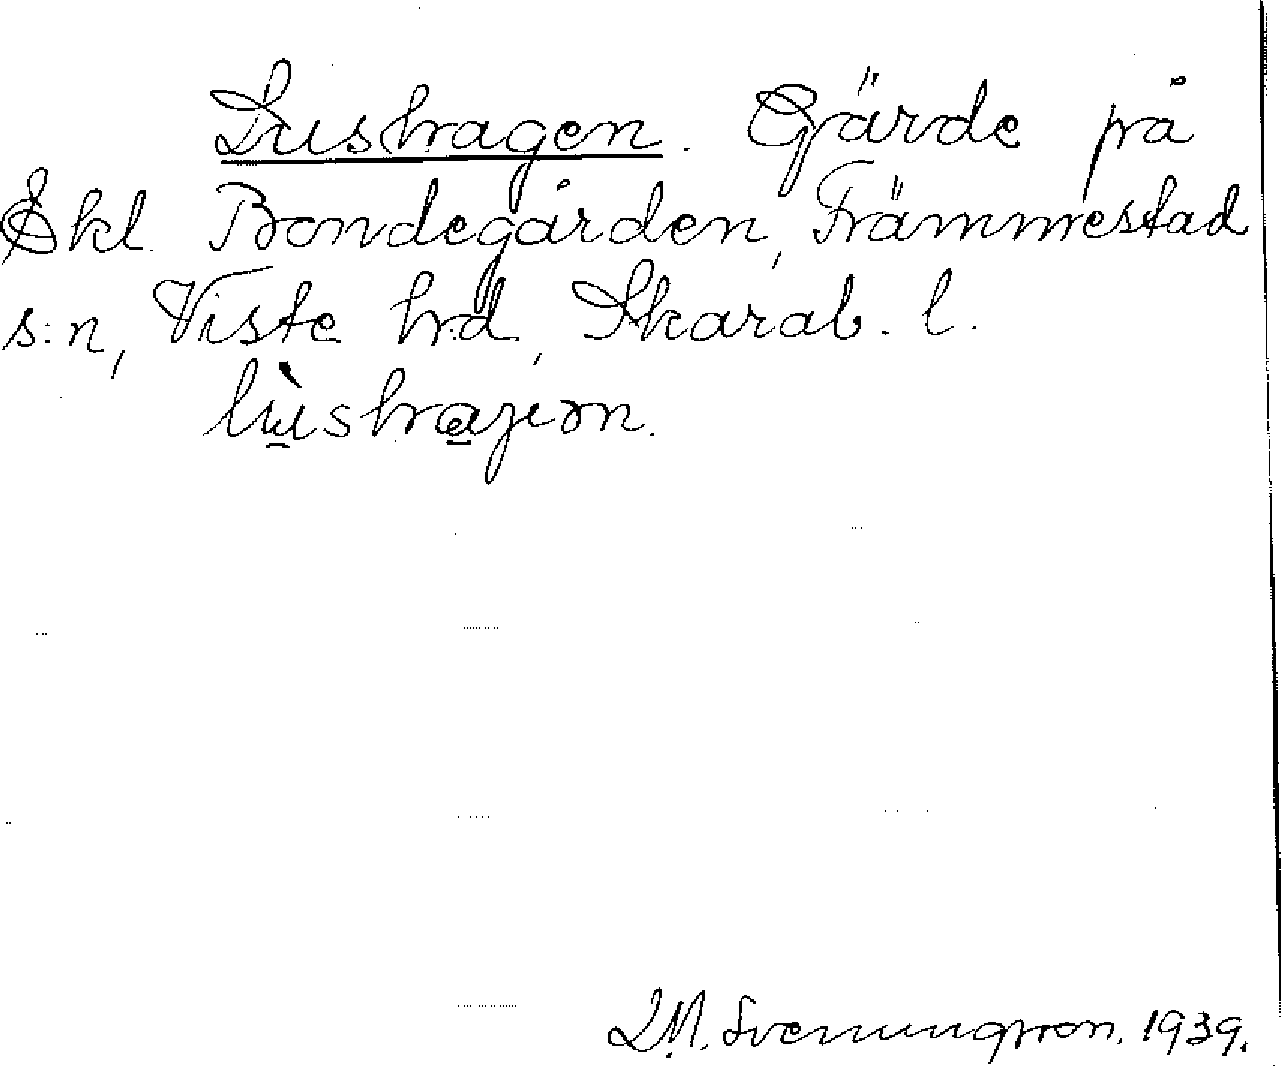 Lushagen. Gärde på
Skl. Bondegården, Främmestad
s:n, Viste hd, Skarab. l.
lùshaɡen.
L.M. Svenungsson. 1939.